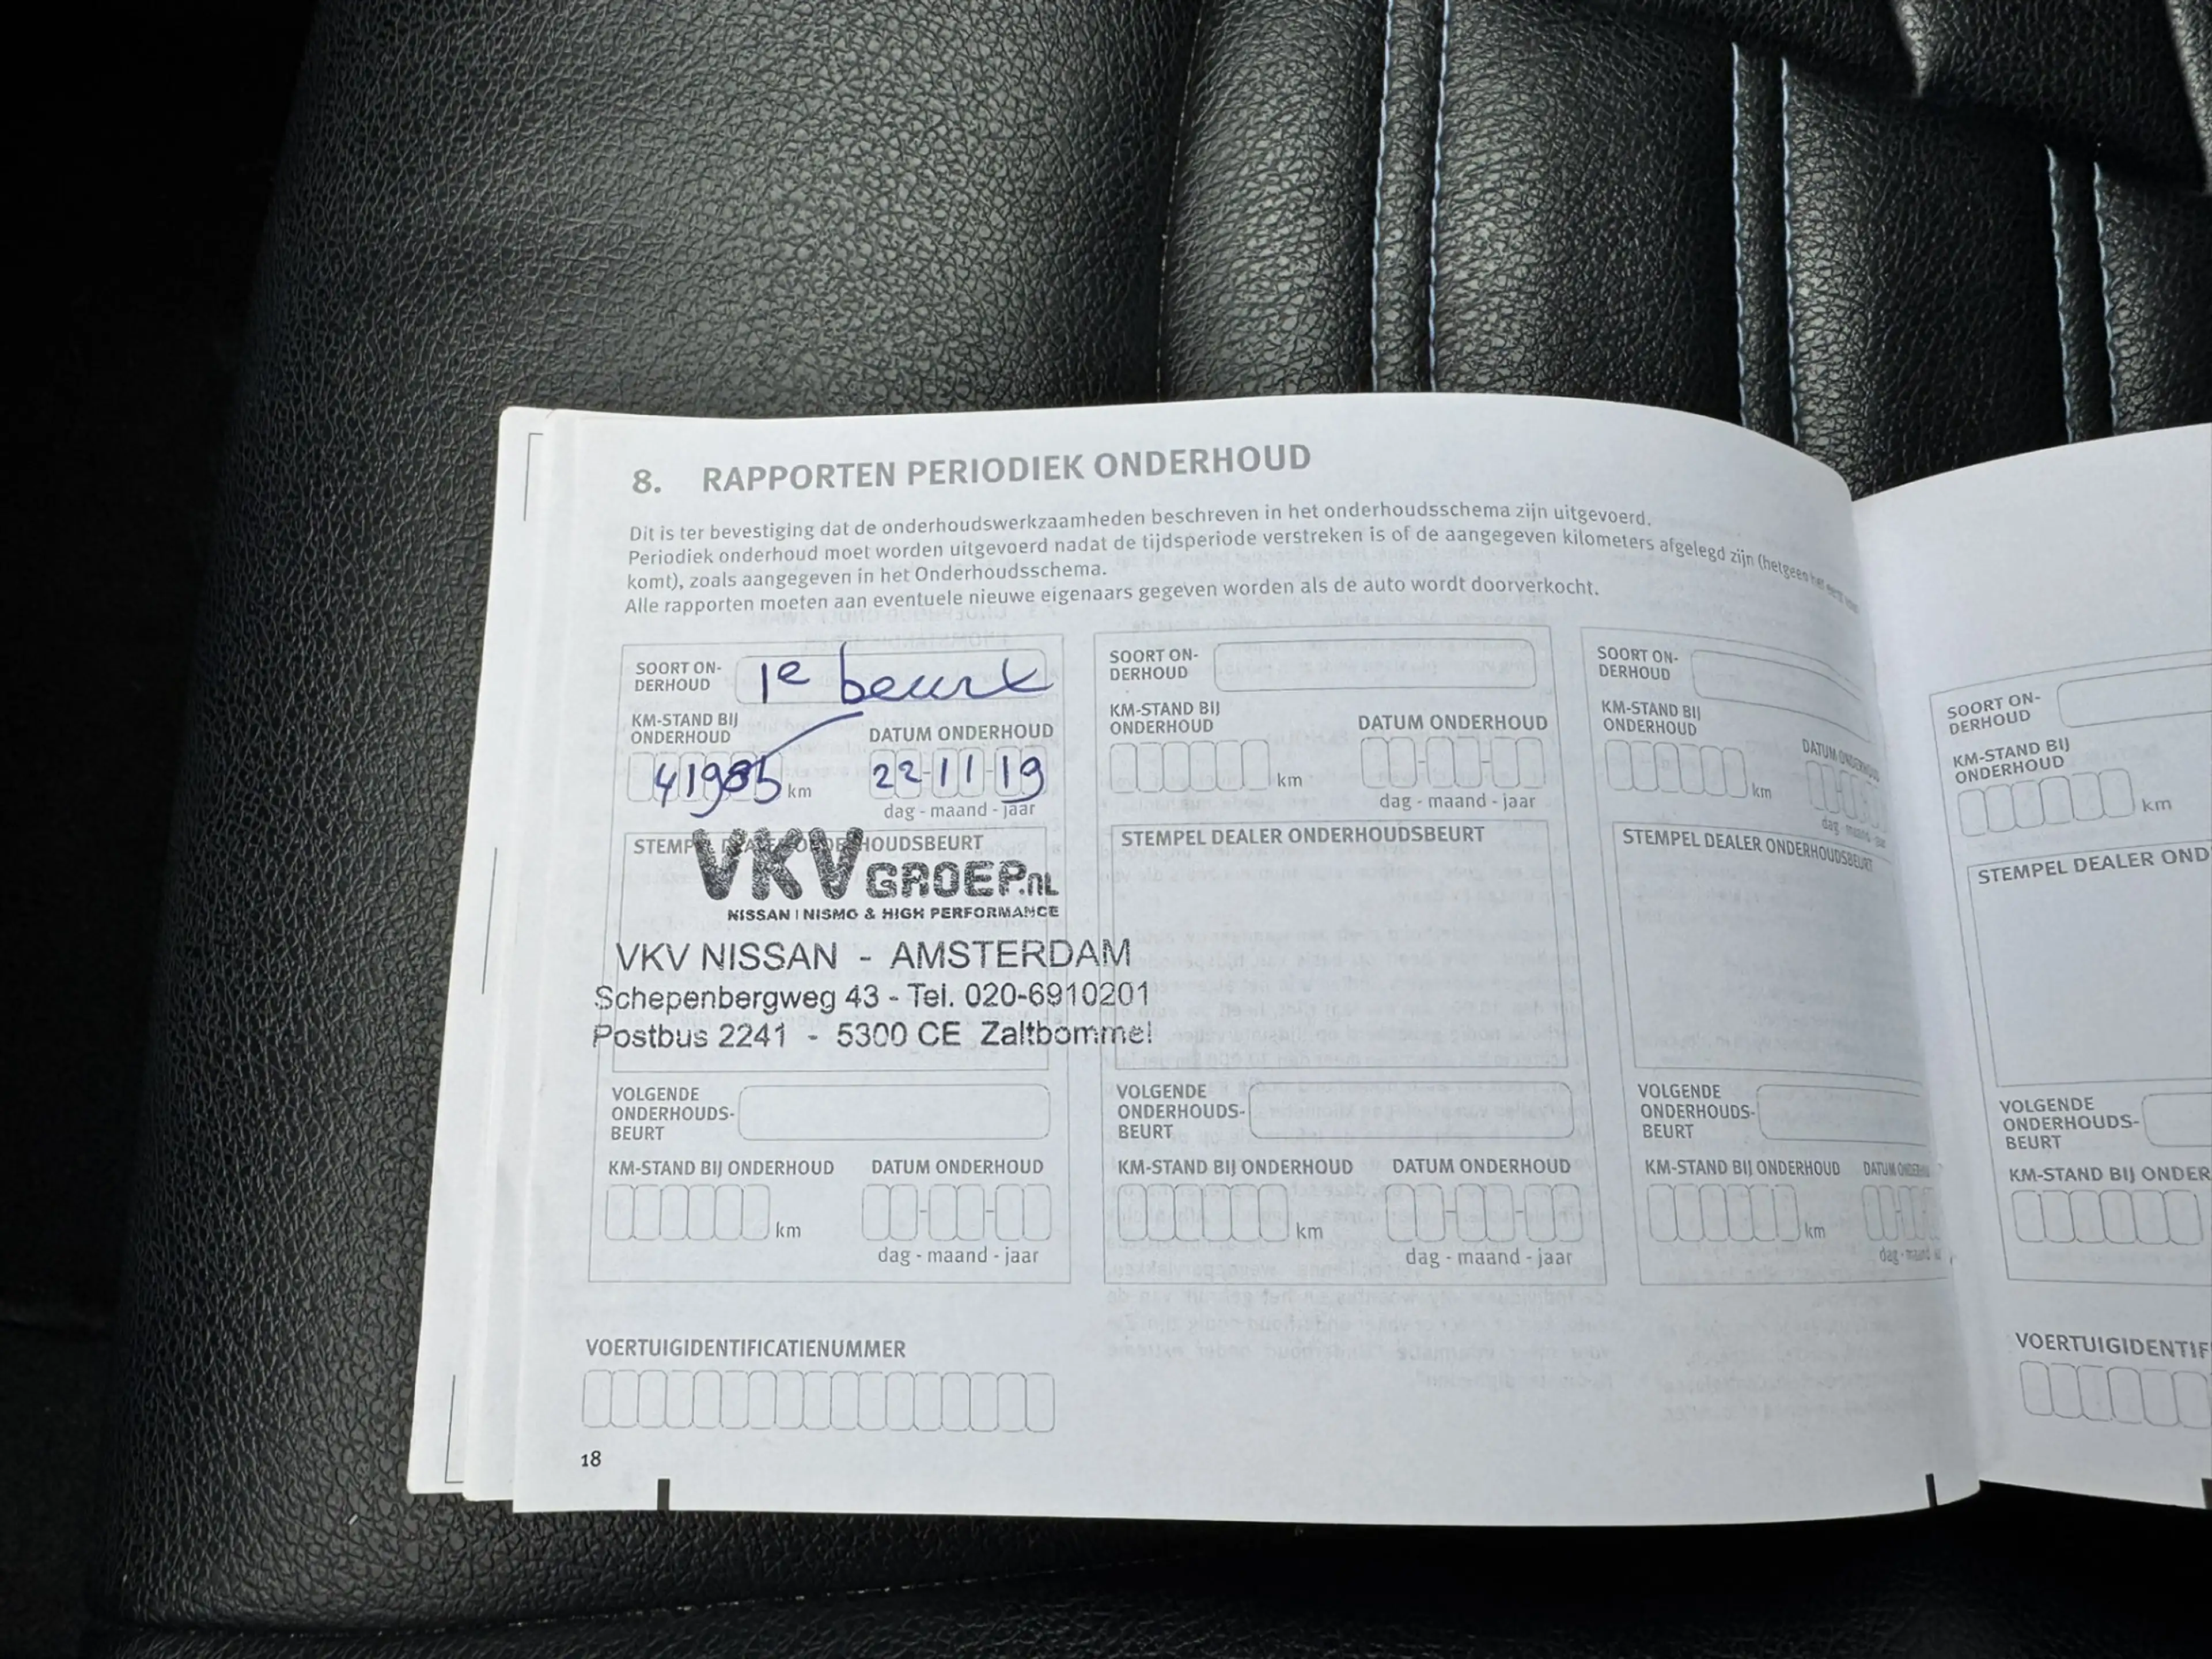 8. RAPPORTEN PERIODIEK ONDERHOUD
Dit is ter bevestiging dat de onderhoudswerkzaamheden beschreven in het onderhoudsschema zijn uitgevoerd.
Periodiek onderhoud moet worden uitgevoerd nadat de tijdsperiode verstreken is of de aangegeven kilometers afgelegd zijn (hetgeen het eerst
komt), zoals aangegeven in het Onderhoudsschema.
Alle rapporten moeten aan eventuele nieuwe eigenaars gegeven worden als de auto wordt doorverkocht.
SOORT ON-
DERHOUD
1e beurt
KM-STAND BIJ
ONDERHOUD
DATUM ONDERHOUD
41985 km
22-11-19
dag - maand - jaar
STEMPEL DEALER ONDERHOUDSBEURT
VKVGROEP.nl
NISSAN | NISMO & HIGH PERFORMANCE
VKV NISSAN - AMSTERDAM
Schepenbergweg 43 - Tel. 020-6910201
Postbus 2241 - 5300 CE Zaltbommel
VOLGENDE
ONDERHOUDS-
BEURT
KM-STAND BIJ ONDERHOUD
DATUM ONDERHOUD
km
dag - maand - jaar
SOORT ON-
DERHOUD
KM-STAND BIJ
ONDERHOUD
DATUM ONDERHOUD
km
dag - maand - jaar
STEMPEL DEALER ONDERHOUDSBEURT
VOLGENDE
ONDERHOUDS-
BEURT
KM-STAND BIJ ONDERHOUD
DATUM ONDERHOUD
km
dag - maand - jaar
SOORT ON-
DERHOUD
KM-STAND BIJ
ONDERHOUD
DATUM ONDERHOUD
km
dag - maand - jaar
STEMPEL DEALER ONDERHOUDSBEURT
VOLGENDE
ONDERHOUDS-
BEURT
KM-STAND BIJ ONDERHOUD
DATUM ONDERHOUD
km
dag - maand
VOERTUIGIDENTIFICATIENUMMER
18
SOORT ON-
DERHOUD
KM-STAND BIJ
ONDERHOUD
km
STEMPEL DEALER OND
VOLGENDE
ONDERHOUDS-
BEURT
KM-STAND BIJ ONDER
VOERTUIGIDENTIF